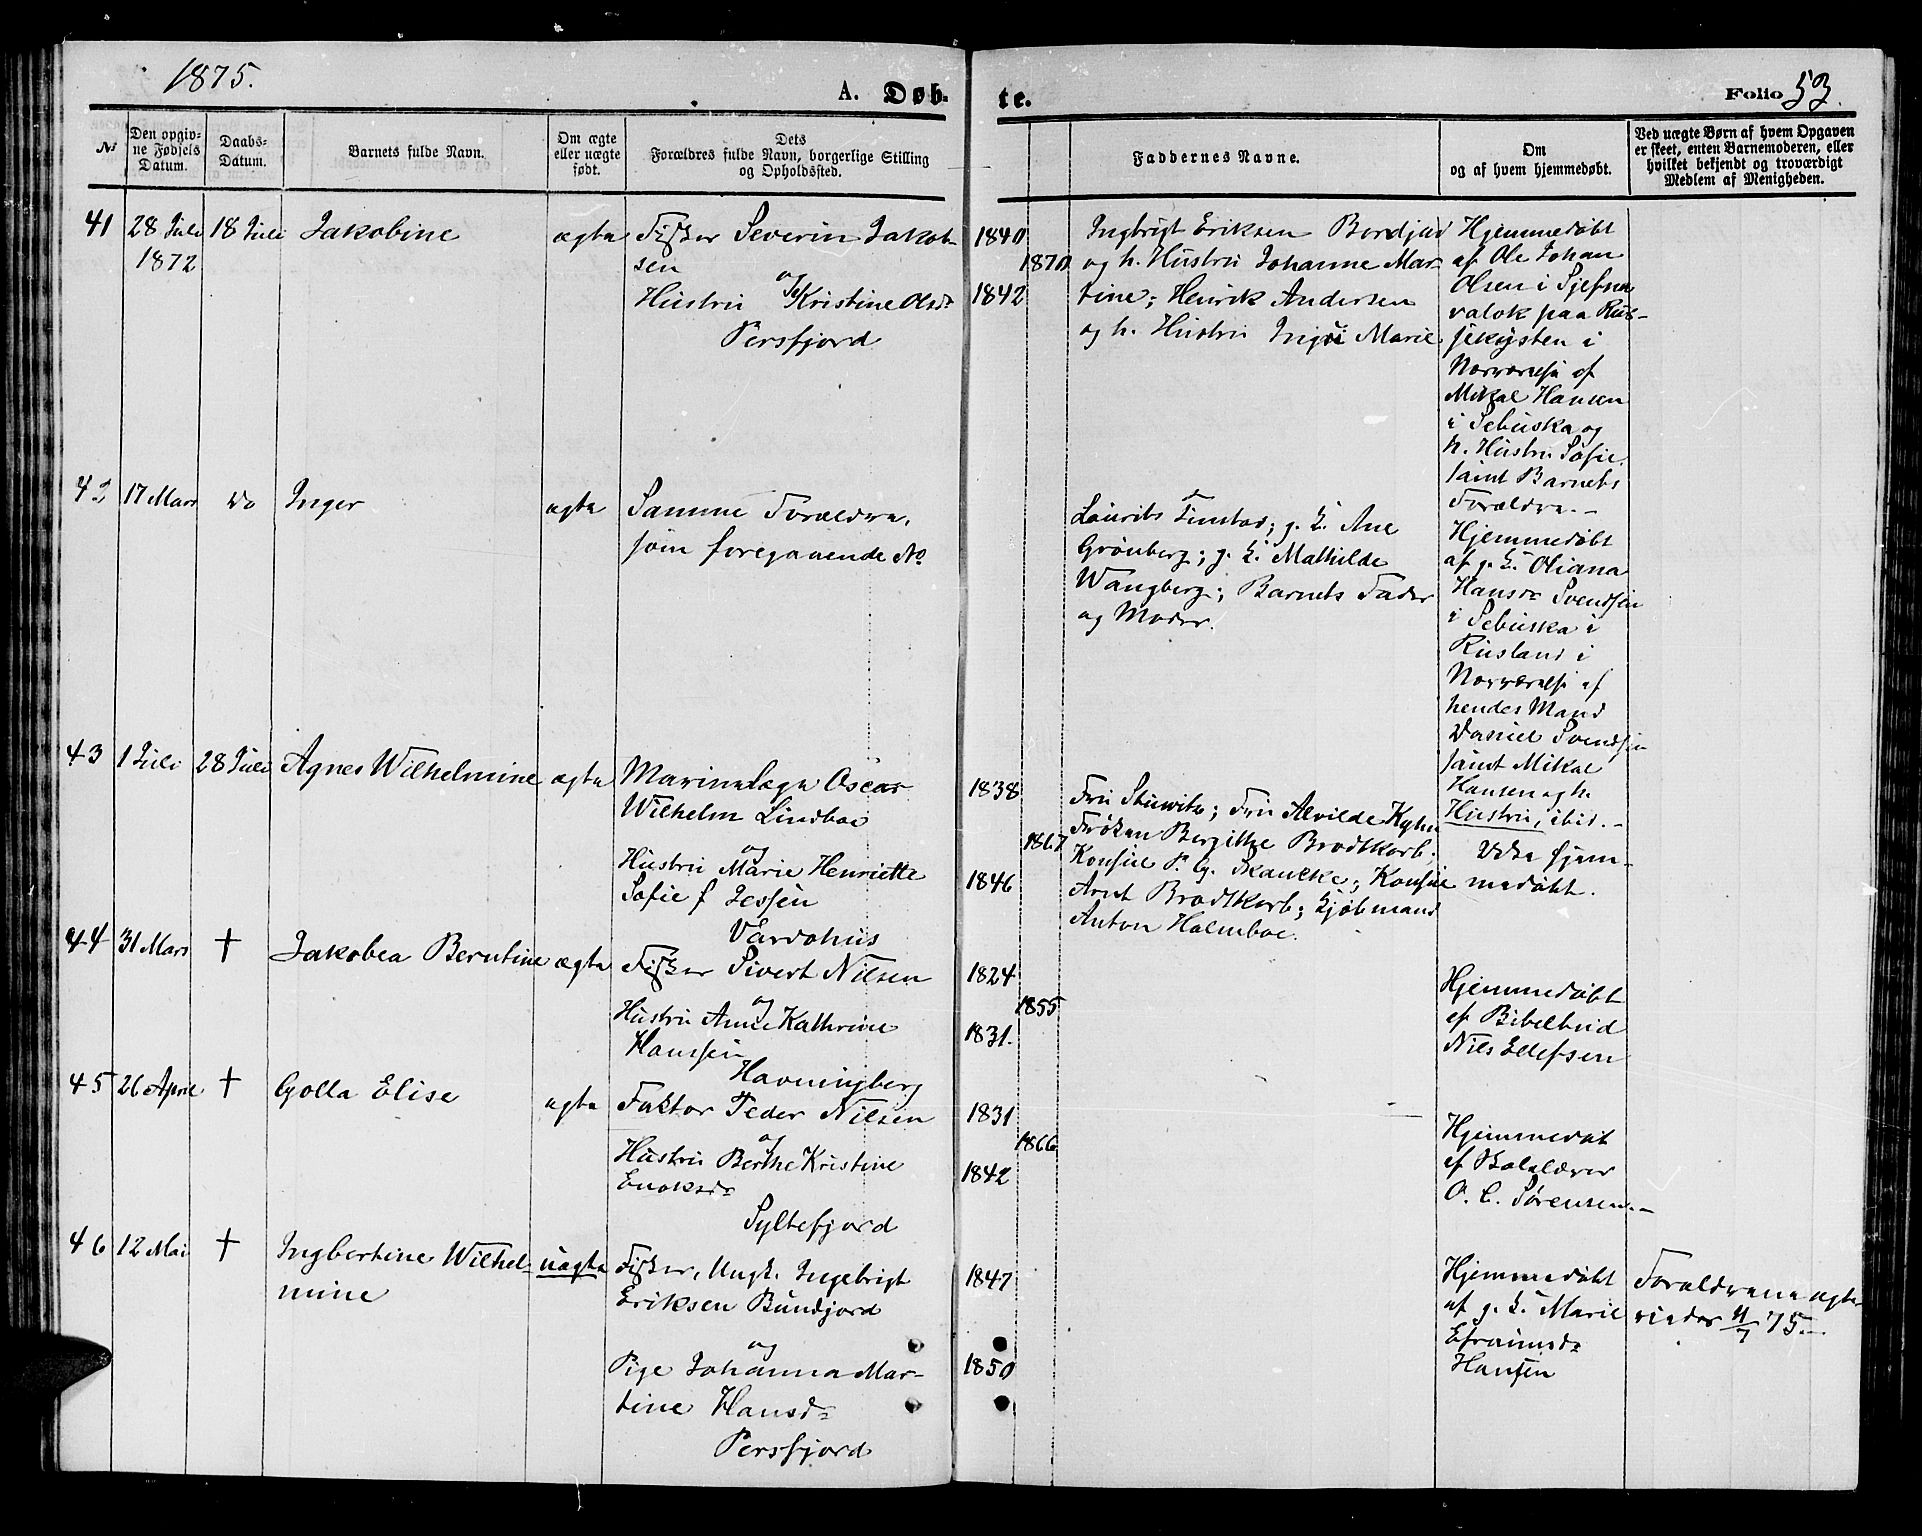 1875.
A. Døb-
te.
Folio 53.
No
Den opgiv-
ne Fødsels
Datum.
Daabs-
Datum.
Barnets fulde Navn.
Om ægte
eller uægte
født.
Dets
Forældres fulde Navn, borgerlige Stilling
og Opholdssted.
Faddernes Navne.
Om
og af hvem hjemmedøbt.
Ved uægte Børn af hvem Opgaven
er skeet, enten Barnemoderen, eller
hvilket bekjendt og troværdigt
Medlem af Menigheden.
41
28 Juli
1872
18 Juli
Jakobine
ægte
Fisker Severin Jakob-
sen
og
Hustru Kristine Olsdr
Persfjord
1840
1870
1842
Ingbrigt Eriksen
og h. Hustru Johanne Mar-
tine; Henrik Andersen
og h. Hustru Marie
Hjemmedøbt
af Ole Johan
Olsen i
valok paa Rus-
sekysten i
Nærværelse af
Mikal Hansen
i Sebuska og
h. Hustru Sofie
samt Barnets
Forældre.-
42
17 Mars
Do
Inger
ægte
Samme Forældre,
som foregaaende No
Laurits Finstad; g. K. Ane
Grönberg; g. K. Mathilde
Wangberg; Barnets Fader
og Moder.
Hjemmedøbt
af g. K. Oliana
Hansdr Svendsen
i Sebuska i
Rusland i
Nærværelse af
hendes Mand
Daniel Svendsen
samt Mikal
Hansen og h.
Hustru, ibid.-
43
1 Juli
28 Juli
Agnes Wilhelmine
ægte
Marinelæge Oscar
Wilhelm Lindboe
og
Hustru Marie Henriette
Sofie f Jessen
Vardøhus
1838
1867
1846
Fru Stuwitz; Fru Alvilde
Frøken Bergithe Brodtkorb;
Konsul P. G. Skancke; Konsul
Arnt Brodtkorb; Kjøbmand
Anton Holmboe.
Ikke hjem-
medøbt.
44
31 Mars
†
Jakobea Berntine
ægte
Fisker Sivert Nilsen
og
Hustru Anne Kathrine
Hanssen
Havningberg
1824
1855
1831.
Hjemmedøbt
af Bibelbud
Nils Ellefsen
45
26 April
†
Golla Elise
ægte
Faktor Peder Nilsen
og
Hustru Berthe Kristine
Enoksdr
Syltefjord
1831
1866
1842
Hjemmedøbt
af Skolelærer
O. C. Sørensen.-
46
12 Mai
†
Ingbertine Wilhel-
mine
uægte
Fisker, Ungk. Ingebrigt
Eriksen Bundjord
og
Pige Johanna Mar-
tine Hansdr
Persfjord
1847
1850
Hjemmedøbt
af g. K. Marie
Efraimsdr
Hansen
Forældrene ægte-
viedes 11/7 75.-